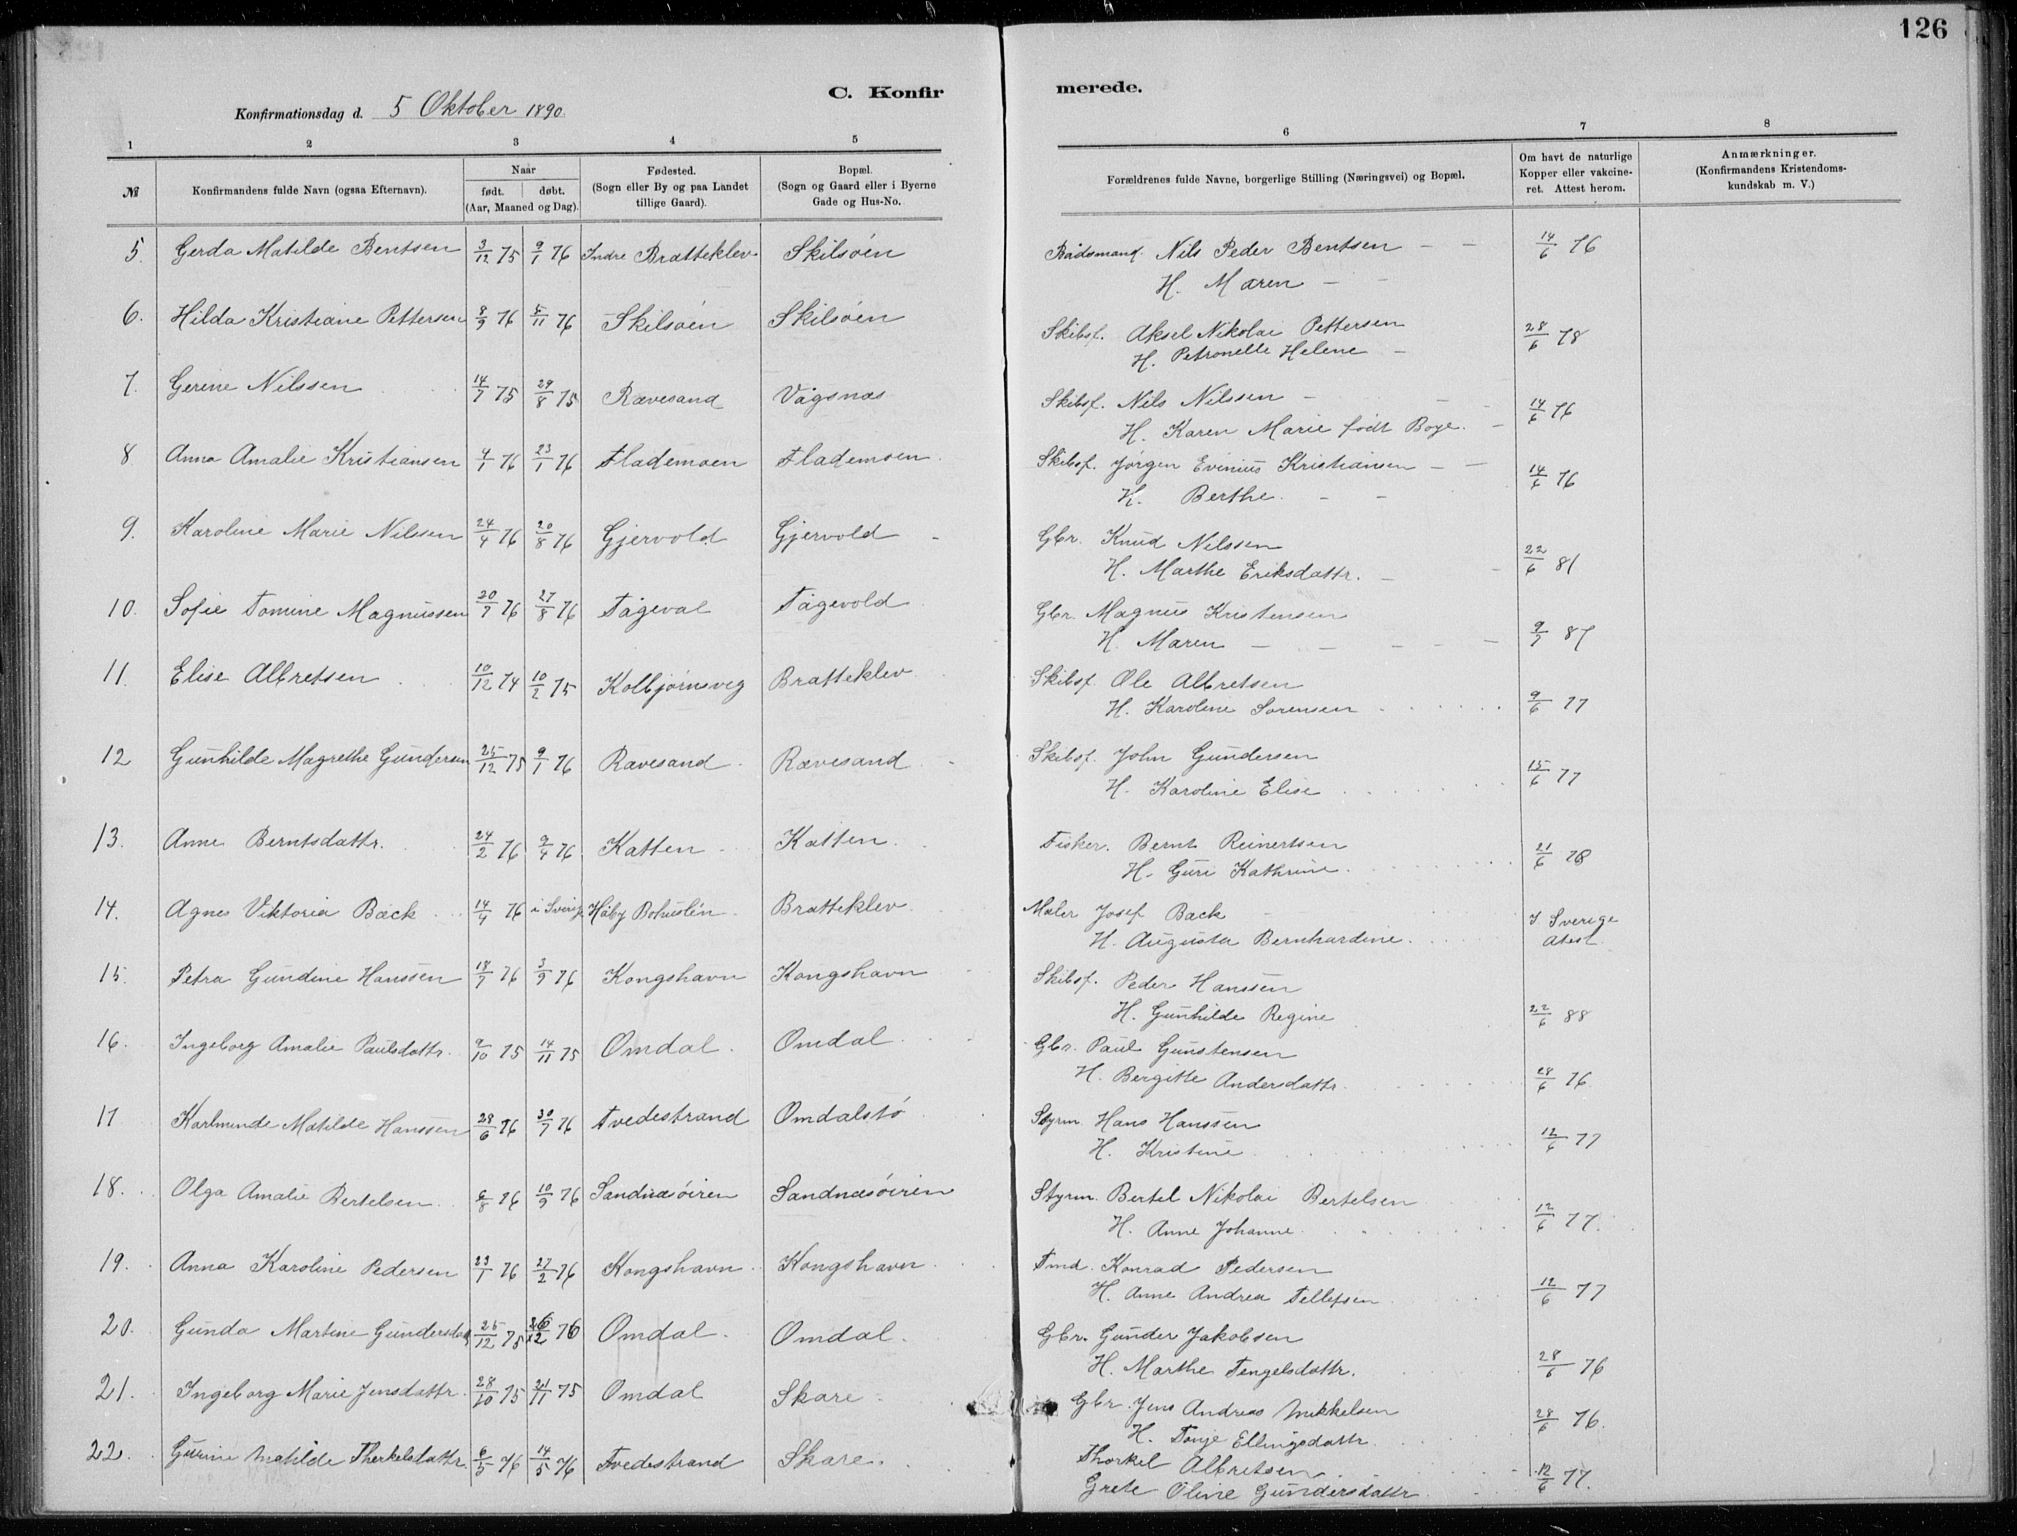 126
C. Konfirmerede.
Konfirmationsdag d. 5 Oktober 1890.
1 2 3 4 5 6 7 8
№ Konfirmandens fulde Navn (ogsaa Efternavn). Naar født. døbt. (Aar, Maaned og Dag). Fødested. (Sogn eller By og paa Landet tillige Gaard). Bopæl. (Sogn og Gaard eller i Byerne Gade og Hus-No. Forældrenes fulde Navne, borgerlige Stilling (Næringsvei) og Bopæl. Om havt de naturlige Kopper eller vakcineret. Attest herom. Anmærkninger. (Konfirmandens Kristendomskundskab m. V.)
5. Gerda Matilde Bentsen 3/12 75 9/1 76 Indre Bratteklev Skilsøen Baadsmand. Nils Peder Bentsen — — 14/6 76
H. Maren — —
6. Hilda Kristiane Pettersen 8/9 76 5/11 76 Skilsøen Skilsøen Skibsf. Aksel Nikolai Pettersen 28/6 78
H. Petronelle Helene —
7. Gerine Nilssen 14/7 75 29/8 75 Rævesand Vågsnæs Skibsf. Nils Nilssen — — — 14/6 76
H. Karen Marie født Boye. —
8 Anna Amalie Kristiansen 4/1 76 23/1 76 Flademoen Flademoen. Skibsf. Jørgen Evinius Kristiansen — — 14/6 76
H. Berthe. — —
9. Karoline Marie Nilssen 24/4 76 20/8 76 Gjervold Gjervold — Gbr. Knud Nilssen 22/6 81
H. Marthe Eriksdattr. — —
10. Sofie Tomine Magnussen 20/7 76 27/8 76 Tågeval Tågevold Gbr. Magnus Kristensen 9/7 87
H. Maren — — — — —
11. Elise Albretsen 10/12 74 10/2 75 Kolbjørnsveg Bratteklev Skibsf. Ole Albretsen 9/6 77
H. Karoline Sørensen
12 Gunhilde Magrethe Gundersen 25/12 75 9/1 76 Rævesand Rævesand Skibsf. John Gundersen 15/6 77
H. Karoline Elise
13. Anne Berntsdattr. 24/2 76 9/4 76 Katten Katten. Fisker. Bernt Reinertsen 21/6 78
H. Guri Kathrine.
14. Agnes Viktoria Back 14/4 76 i Sverig. Håby Bohuslén Bratteklev Maler Josef Back — I Sverige
H. Augusta Bernhardine. Atest
15. Petra Gundine Hanssen 18/7 76 3/9 76 Kongshavn Kongshavn Skibsf. Peder Hanssen
H. Gunhilde Regine 22/6 88
16. Ingeborg Amalie Paulsdattr. 9/10 75 14/11 75 Omdal. Omdal Gbr. Paul Gunstensen
H. Bergitte Andersdattr. 28/6 76
17 Karlminde Matilde Hanssen 28/6 76 30/7 76 Tvedestrand Omdalstø Styrm. Hans Hanssen
H. Kristine 12/6 77
18. Olga Amalie Bertelsen. 6/8 76 10/9 76 Sandnæsøiren Sandnæsøiren Styrm. Bertel Nikolai Bertelsen
H. Anne Johanne. 12/6 77.
19. Anna Karoline Pedersen 23/1 76 27/2 76 Kongshavn Kongshavn Tmd. Konrad Pedersen
H. Anne Andrea Tellefsen 12/6 77
20. Gunda Martine Gundersdatt. 25/12 75 26/12 76 Omdal. Omdal. Gbr. Gunder Jakobsen
H. Marthe Tengelsdattr. 28/6 76
21. Ingeborg Marie Jensdattr. 28/10 75 21/11 75 Omdal Skare Gbr. Jens Andreas Mikkelsen 28/6 76.
H. Tonje Ellingsdattr
22. Gurine Matilde Therkelsdattr. 6/3 76 14/5 76 Tvedestrand Skare. Thorkel Albretsen 12/6 77.
Grete Oline Gundersdattr